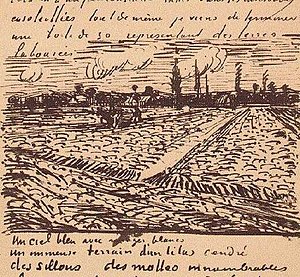 ensoleillées tout de même je viens de terminer
une toile de 30 representant des terres
labourées
Un ciel bleu avec nuages blancs
Un immense terrain d'un lilas cendré
des sillons des mottes innombrables